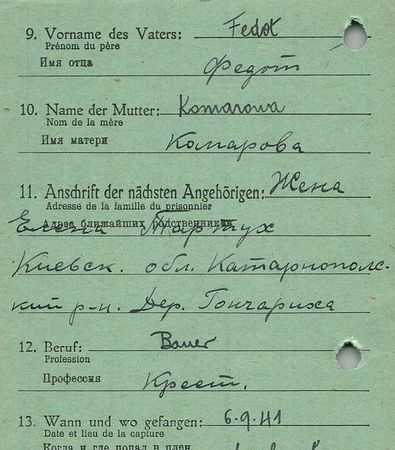 9. Vorname des Vaters: Fedot
Prénom du père
Имя отца
Федот
10. Name der Mutter: Komarowa
Nom de la mère
Имя матери
Камарова
11. Anschrift der nächsten Angehörigen: Жена
Adresse de la famille du prisonnier
Адрес ближайших родственников
Елена Тартух
Киевск. обл. Катарнополс-
кий р-н. Дер. Гончариха
12. Beruf: Bauer
Profession
Профессия
Крест.
13. Wann und wo gefangen: 6.9.41
Date et lieu de la capture
Когда и где попал в плен